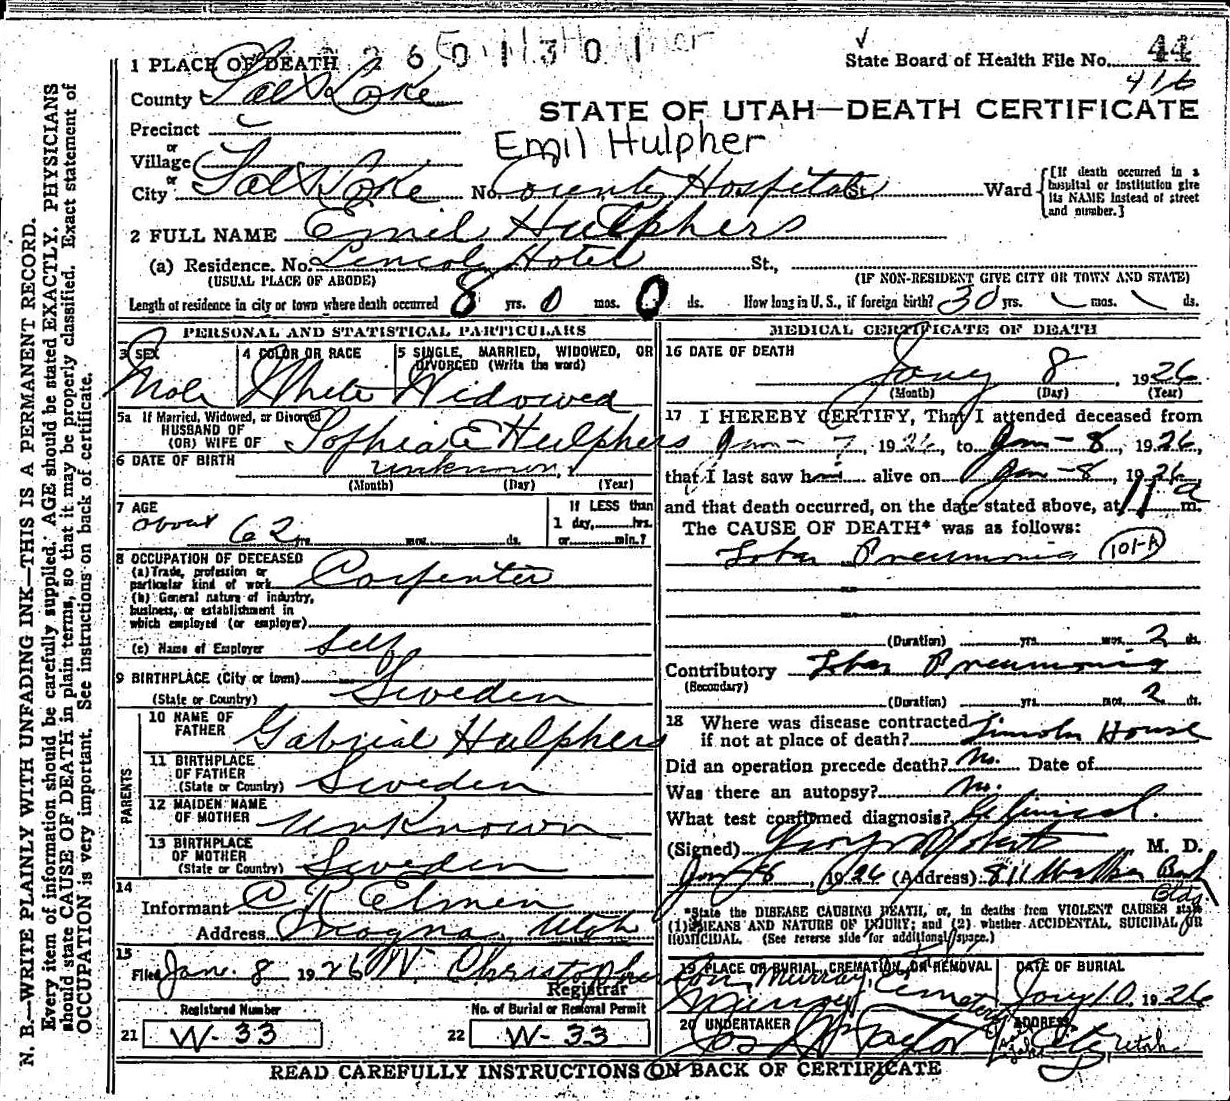 Emil Hulpher
2 6 0 1 3 0 1
1 PLACE OF DEATH
State Board of Health File No. 44
416
County Salt Lake
STATE OF UTAH—DEATH CERTIFICATE
Precinct
or
Emil Hulpher
Village
or
City Salt Lake No. County Hospital St. Ward
[If death occurred in a hospital or institution give its NAME instead of street and number.]
2 FULL NAME Emil Hulphers
(a) Residence. No. Lincoln Hotel St.,
(USUAL PLACE OF ABODE) (IF NON-RESIDENT GIVE CITY OR TOWN AND STATE)
Length of residence in city or town where death occurred 8 yrs. 0 mos. 0 ds. How long in U. S., if foreign birth? 30 yrs. mos. ds.
PERSONAL AND STATISTICAL PARTICULARS
3 SEX
Male
4 COLOR OR RACE
White
5 SINGLE, MARRIED, WIDOWED, OR
DIVORCED (Write the word)
Widowed
5a If Married, Widowed, or Divorced
HUSBAND OF
(OR) WIFE OF Sophia E Hulphers
6 DATE OF BIRTH unknown
(Month) (Day) (Year)
7 AGE
about 62 yrs. mos. ds.
If LESS than
1 day, hrs.
or min.?
8 OCCUPATION OF DECEASED
(a) Trade, profession or
particular kind of work Carpenter
(b) General nature of industry,
business, or establishment in
which employed (or employer)
(c) Name of Employer Self
9 BIRTHPLACE (City or town)
(State or Country) Sweden
PARENTS
10 NAME OF
FATHER Gabrial Hulphers
11 BIRTHPLACE
OF FATHER
(State or Country) Sweden
12 MAIDEN NAME
OF MOTHER Unknown
13 BIRTHPLACE
OF MOTHER
(State or Country) Sweden
14
Informant C R Elmen
Address Magna Utah
15
Filed Jan. 8 1926 W Christopherson
Registrar
Registered Number
21 W-33
No. of Burial or Removal Permit
22 W-33
MEDICAL CERTIFICATE OF DEATH
16 DATE OF DEATH
Jany 8, 1926
(Month) (Day) (Year)
17 I HEREBY CERTIFY, That I attended deceased from
Jan - 7, 1926, to Jan - 8, 1926,
that I last saw him alive on Jan - 8, 1926
and that death occurred, on the date stated above, at 11 a m.
The CAUSE OF DEATH* was as follows:
Lobar Pneumonia 101-A
(Duration) yrs. mos. 2 ds.
Contributory Lobar Pneumonia
(Secondary)
(Duration) yrs. mos. 2 ds.
18 Where was disease contracted
if not at place of death? Lincoln House
Did an operation precede death? No. Date of
Was there an autopsy? No.
What test confirmed diagnosis? Clinical.
(Signed) M. D.
Jan 8, 1926 (Address) 811 Walker Bank
Bldg
*State the DISEASE CAUSING DEATH, or, in deaths from VIOLENT CAUSES state
(1) MEANS AND NATURE OF INJURY; and (2) whether ACCIDENTAL, SUICIDAL OR
HOMICIDAL. (See reverse side for additional space.)
19 PLACE OR BURIAL, CREMATION, OR REMOVAL
Murray Cemetery
Murray
DATE OF BURIAL
Jany 10, 1926
20 UNDERTAKER
Jos Wm Taylor
ADDRESS
City, Utah
READ CAREFULLY INSTRUCTIONS ON BACK OF CERTIFICATE
N. B.—WRITE PLAINLY WITH UNFADING INK—THIS IS A PERMANENT RECORD.
Every item of information should be carefully supplied. AGE should be stated EXACTLY. PHYSICIANS
should state CAUSE OF DEATH in plain terms, so that it may be properly classified. Exact statement of
OCCUPATION is very important. See instructions on back of certificate.